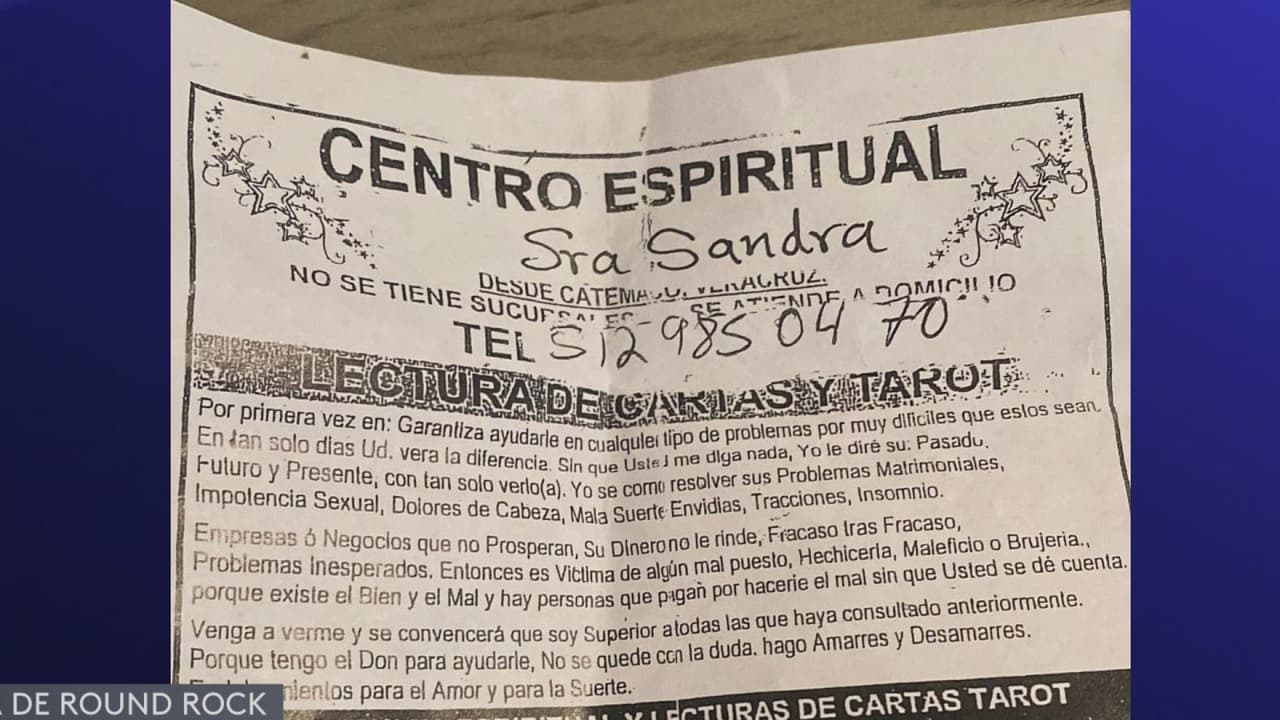 CENTRO ESPIRITUAL
Sra Sandra
DESDE CATEMACO, VERACRUZ.
NO SE TIENE SUCURSALES SE ATIENDE A DOMICILIO
TEL 512 985 04 70
LECTURA DE CARTAS Y TAROT
Por primera vez en: Garantiza ayudarle en cualquier tipo de problemas por muy dificiles que estos sean.
En tan solo dias Ud. vera la diferencia. Sin que Usted me diga nada, Yo le diré su: Pasado.
Futuro y Presente, con tan solo verlo(a). Yo se como resolver sus Problemas Matrimoniales,
Impotencia Sexual, Dolores de Cabeza, Mala Suerte Envidias, Tracciones, Insomnio.
Empresas ó Negocios que no Prosperan, Su Dinero no le rinde, Fracaso tras Fracaso,
Problemas Inesperados. Entonces es Victima de algún mal puesto, Hechiceria, Maleficio o Brujeria.,
porque existe el Bien y el Mal y hay personas que pagan por hacerie el mal sin que Usted se dé cuenta.
Venga a verme y se convencerá que soy Superior a todas las que haya consultado anteriormente.
Porque tengo el Don para ayudarle, No se quede con la duda. hago Amarres y Desamarres.
para el Amor y para la Suerte.
Y LECTURAS DE CARTAS TAROT
DE ROUND ROCK